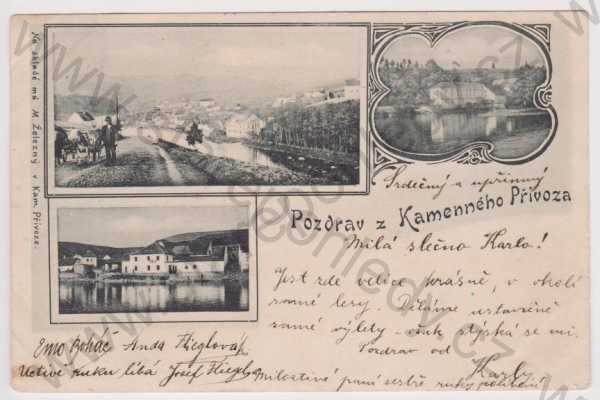 Na skladě má M. Železný v Kam. Přívoze.
Srdečný a upřímný
Pozdrav z Kamenného Přívoza
Milá slečno Karlo!
Jest zde velice krásně, v okolí
samé lesy. Děláme ustavičně
samé výlety – však stýská se mi.
Pozdrav od
Karly
Emo Boháč Anda Flieglova
Uctivě ruku líbá Josef Fliegl
Milostivé paní sestře ruky políbení